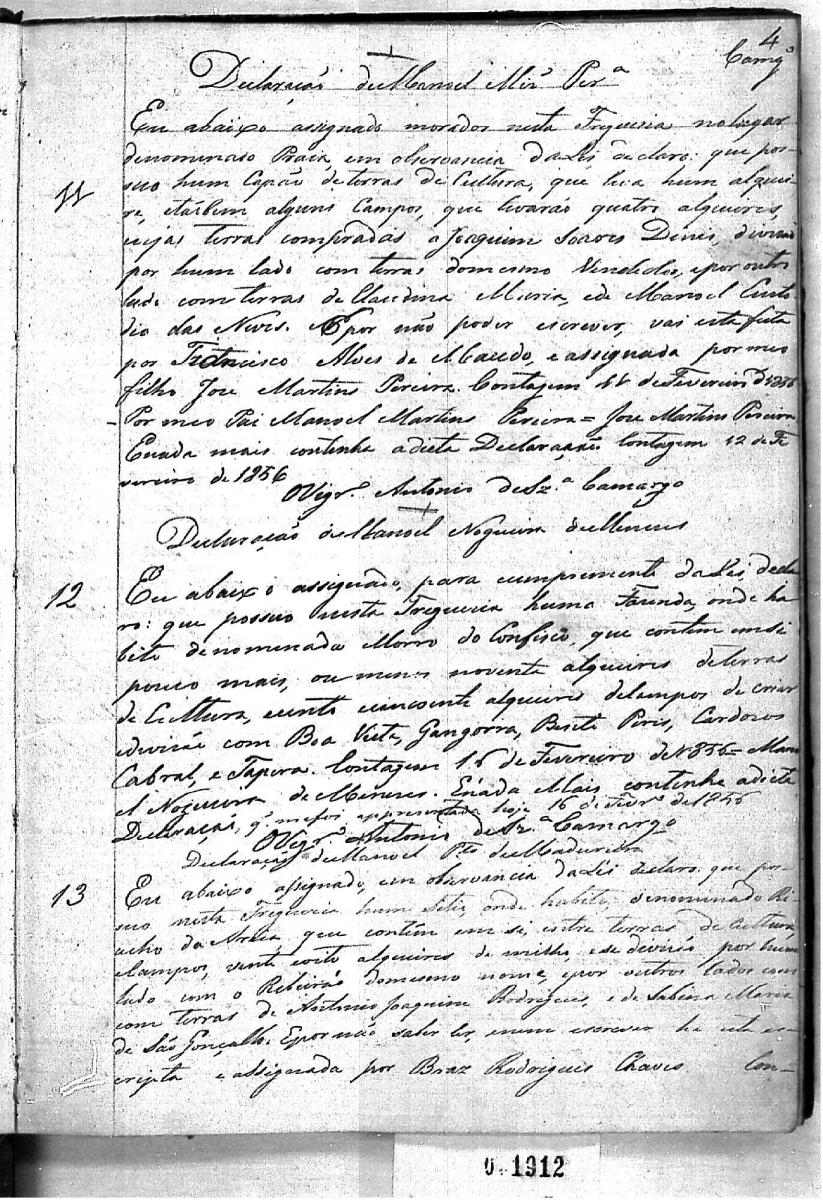 4
Camg.º
Declaração de Manoel Miz Per.ª
Eu abaixo assignado morador nesta Freguesia no lugar
denominado Praia, em observancia da Lei declaro: que pos-
11
suo hum Capão de terras de Cultura, que leva hum alquei-
re, e tãobem alguns Campos, que levarão quatro alqueires,
cujas terras compradas a Joaquim Soares Denis, divisão
por hum lado com terras do mesmo Vendedor, e por outro
lado com terras de Claudina Maria, e de Manoel Custo
dio das Neves. E por não poder escrever, vai esta feita
por Francisco Alves de Macedo, e assignada por meo
filho Jose Martins Pereira. Contagem 11 de Fevereiro de 1856
Por meo Pai Manoel Martins Pereira = Jose Martins Pereira
E nada mais continha a dicta Declaração Contagem 12 de Fe
vereiro de 1856
O Vigr.º Antonio de Sz.ª Camargo
Declaração de Manoel Nogueira de Meneses
12
Eu abaixo assignado, para cumprimento da Lei decla
ro: que possuo nesta Freguesia huma Fazenda, onde ha-
bito denominada Morro do Confisco, que contem em si
pouco mais, ou menos noventa alqueires de terras
de Cultura, e cento e cincoenta alqueires de Campos de criar
e divisão com Boa Vista, Gangorra, Bento Pires, Cardozos
Cabral, e Tapera. Contagem 16 de Fevereiro de 1856 = Mano
el Nogueira de Meneses. E nada Mais continha a dicta
Declaração, q' me foi appresentada hoje 16 de Fevr.º de 1856
O Vigr.º Antonio de Sz.ª Camargo
Declaração de Manoel P.to de Madureira
13
Eu abaixo assignado, em observancia da Lei declaro que pos-
suo nesta Freguesia hum Sitio, onde habito, denominado Ri
acho da Areia, que contêm em si, entre terras de Cultura,
e Campos, vinte e oito alqueires de milho, e se divisão por hum
lado com o Ribeirão do mesmo nome, e por outros lados com
com terras de Antonio Joaquim Rodrigues, e de Sabina Maria
de São Gonçallo. E por não saber ler, e nem escrever he esta es-
cripta e assignada por Braz Rodrigues Chaves. Con-
0.1912